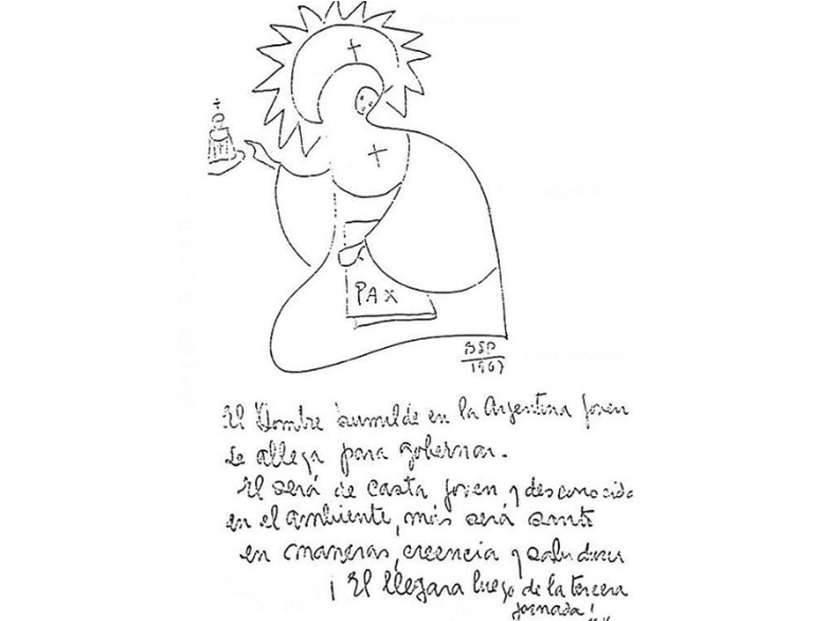 PAX
BSP
1967
El Hombre humilde en la Argentina joven
se allega para gobernar.
El será de casta joven y desconocido
en el ambiente, más será santo
en maneras, creencia y sabiduria
¡ El llegara luego de la tercera
jornada!